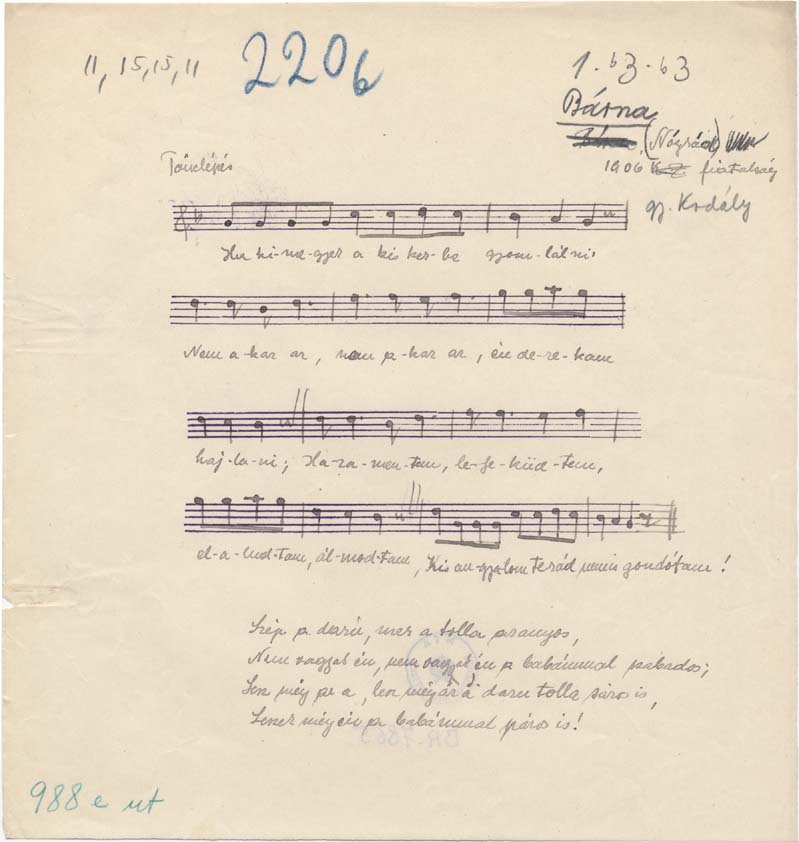 11, 15, 15, 11
220b
1. b3 - b3
Bárna
(Nógrád)
1906 fiatalság
gy. Kodály
Ha ki-me-gyek a kis ker-be gyom-lál-ni,
Nem a-kar az, nem a-kar az, én de-re-kam
haj-la-ni; Ha-za-men-tem, le-fe-küd-tem,
el-a-lud-tam, ál-mod-tam, Kis an-gyalom terád nem is gondótam!
Szép a darú, mer a tolla aranyos,
Nem vagyok én, nem vagyok én a babámmal szabados;
Lesz még az a, lesz még az a daru tolla sáros is,
Leszek még én a babámmal páros is!
988 e ut